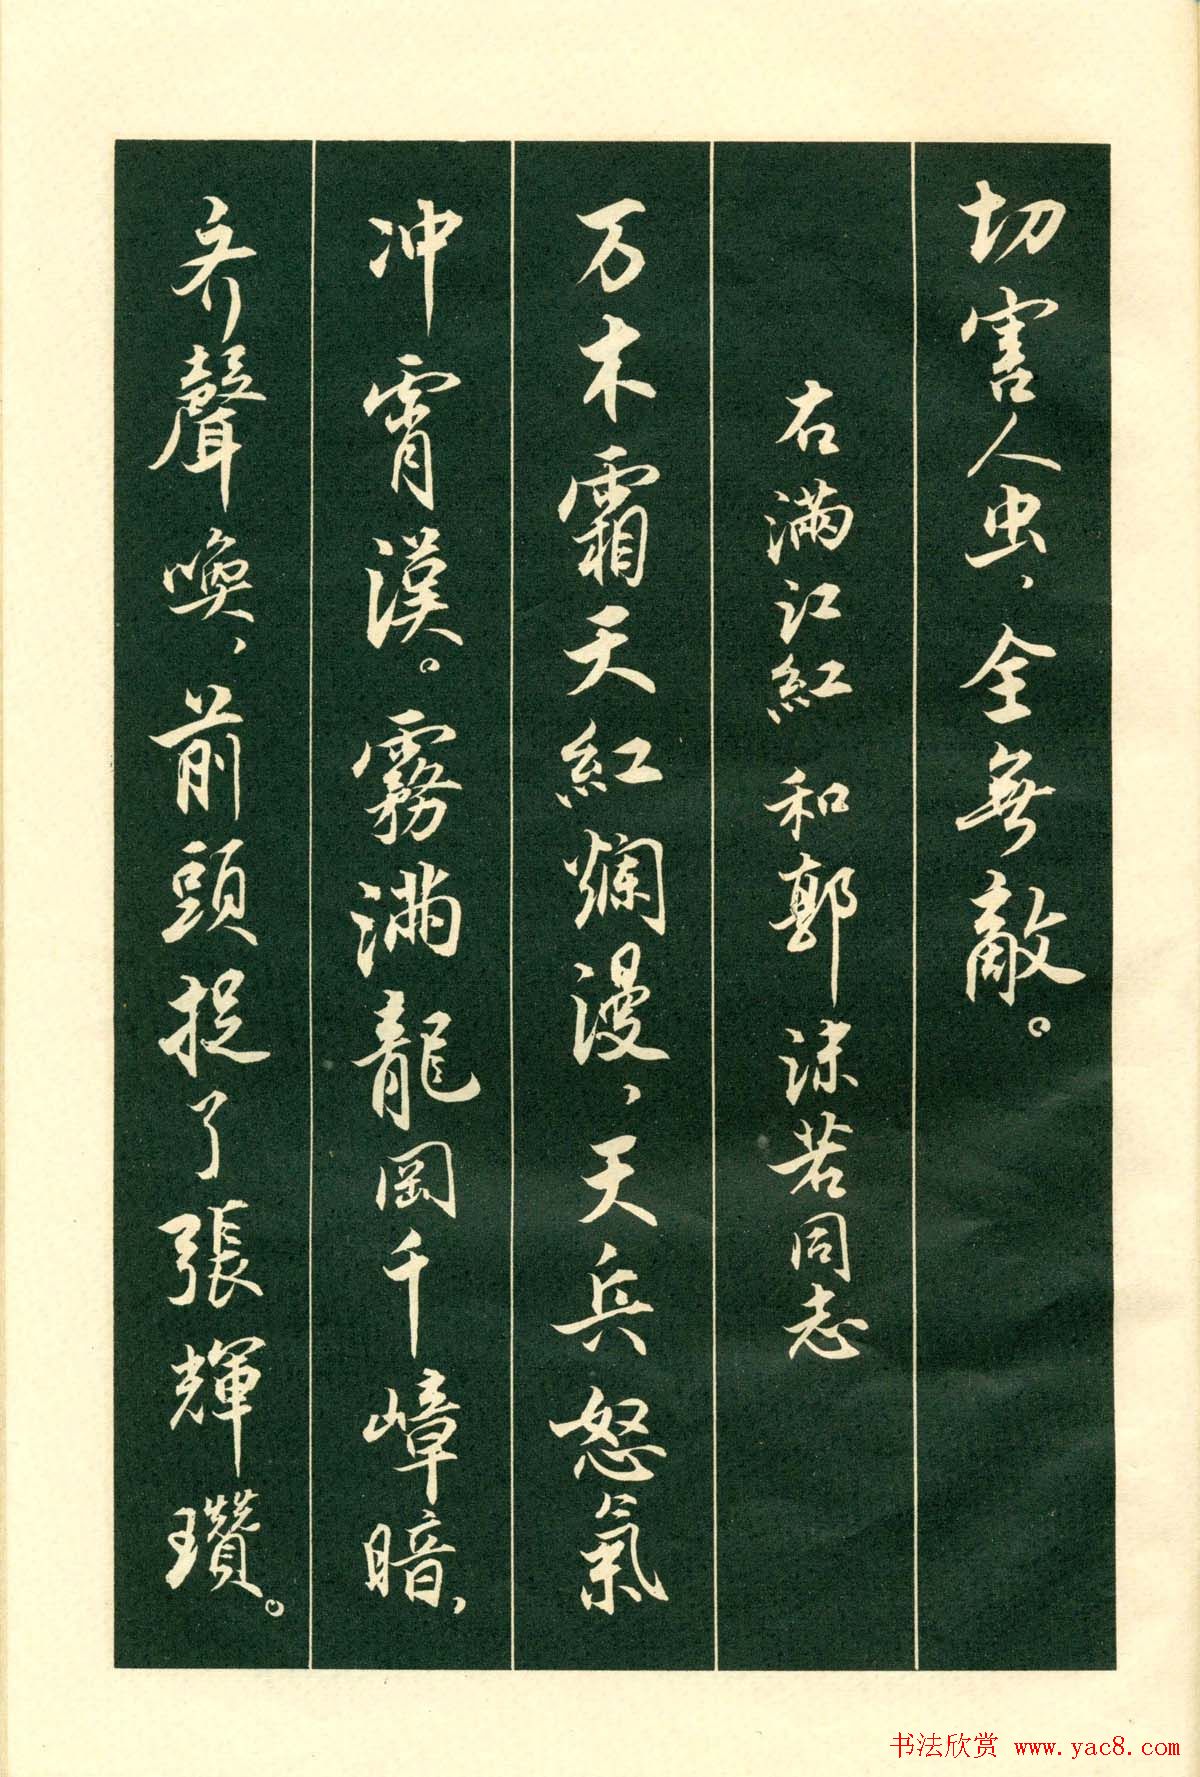 切害人虫，全無敵。
右满江紅 和郭沫若同志
万木霜天紅爛漫，天兵怒氣
冲霄漢。霧满龍岡千嶂暗，
齐聲唤，前頭捉了張輝瓚。
书法欣赏 www.yac8.com